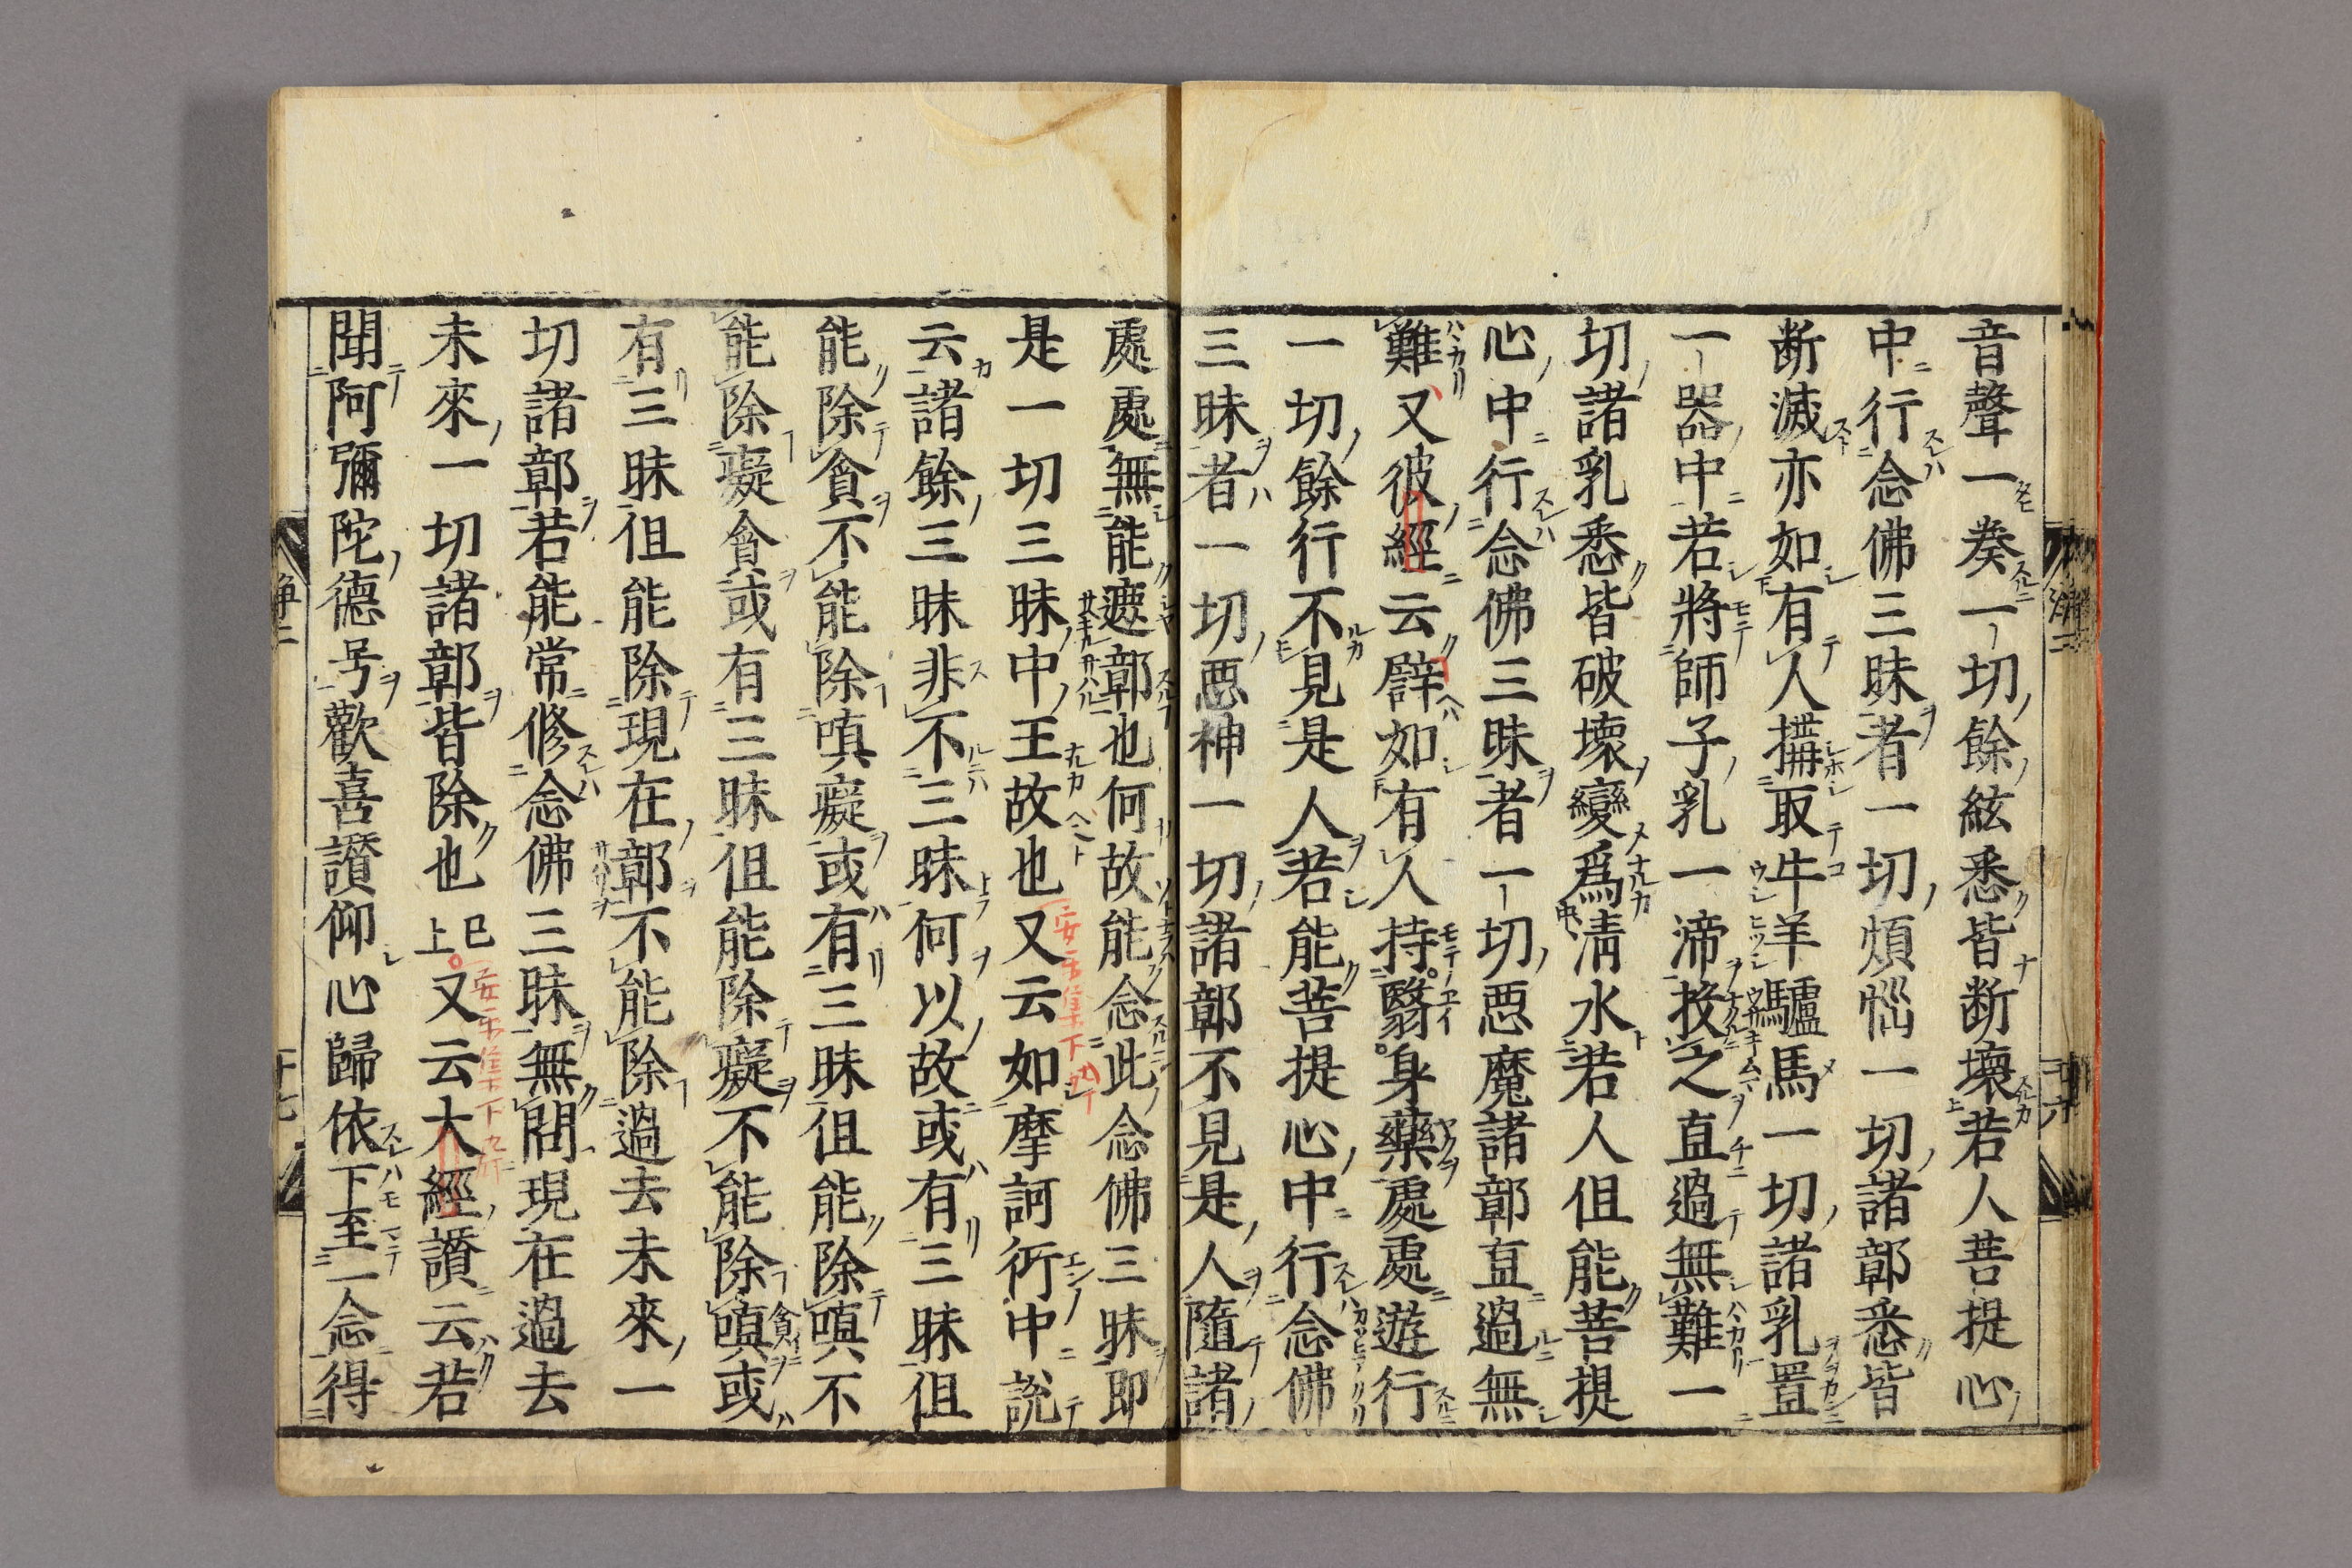 音聲一奏一切餘絃悉皆断壞若人菩提心
中行念佛三昧者一切煩惱一切諸鄣悉皆
断滅亦如有人搆取牛羊驢馬一切諸乳置
一器中若將師子乳一渧投之直過無難一
切諸乳悉皆破壞變爲淸水若人但能菩提
心中行念佛三昧者一切惡魔諸鄣直過無
難又彼經云譬如有人持翳身藥處處遊行
一切餘行不見是人若能菩提心中行念佛
三昧者一切惡神一切諸鄣不見是人隨諸
處處無能遮鄣也何故能念此念佛三昧即
是一切三昧中王故也又云如摩訶衍中說
云諸餘三昧非不三昧何以故或有三昧但
能除貪不能除嗔癡或有三昧但能除嗔不
能除癡貪或有三昧但能除癡不能除嗔或
有三昧但能除現在鄣不能除過去未來一
切諸鄣若能常修念佛三昧無問現在過去
未來一切諸鄣皆除也已上又云大經讃云若
聞阿彌陀德号歡喜讃仰心歸依下至一念得